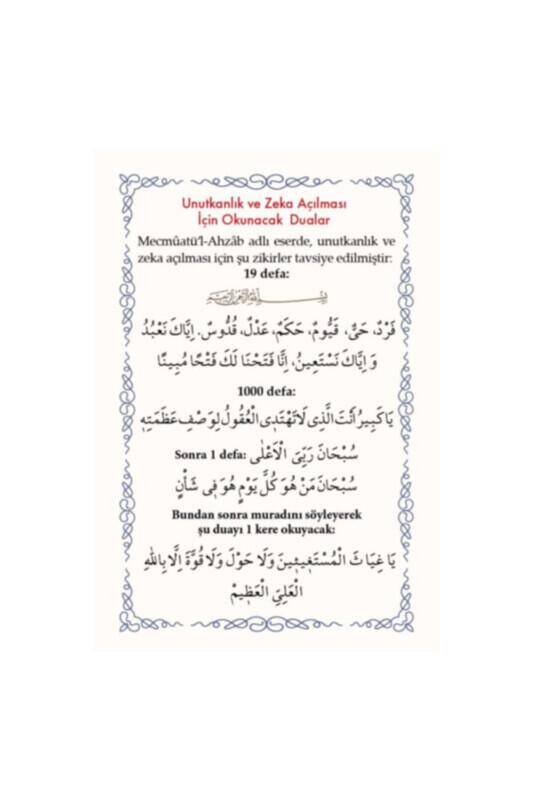 Unutkanlık ve Zeka Açılması
İçin Okunacak Dualar
Mecmûatü'l-Ahzâb adlı eserde, unutkanlık ve
zeka açılması için şu zikirler tavsiye edilmiştir:
19 defa:
بِسْمِ اللّٰهِ الرَّحْمٰنِ الرَّحِيمِ
فَرْدٌ، حَيٌّ، قَيُّومٌ، حَكَمٌ، عَدْلٌ، قُدُّوسٌ. اِيَّاكَ نَعْبُدُ
وَ اِيَّاكَ نَسْتَعِينُ، اِنَّا فَتَحْنَا لَكَ فَتْحًا مُبِينًا
1000 defa:
يَا كَبِيرُ اَنْتَ الَّذِى لَا تَهْتَدِى الْعُقُولُ لِوَصْفِ عَظَمَتِهِ
Sonra 1 defa: سُبْحَانَ رَبِّىَ الْاَعْلٰى
سُبْحَانَ مَنْ هُوَ كُلَّ يَوْمٍ هُوَ فِى شَأْنٍ
Bundan sonra muradını söyleyerek
şu duayı 1 kere okuyacak:
يَا غِيَاثَ الْمُسْتَغِيثِينَ وَلَا حَوْلَ وَلَا قُوَّةَ اِلَّا بِاللّٰهِ
الْعَلِىِّ الْعَظِيمْ